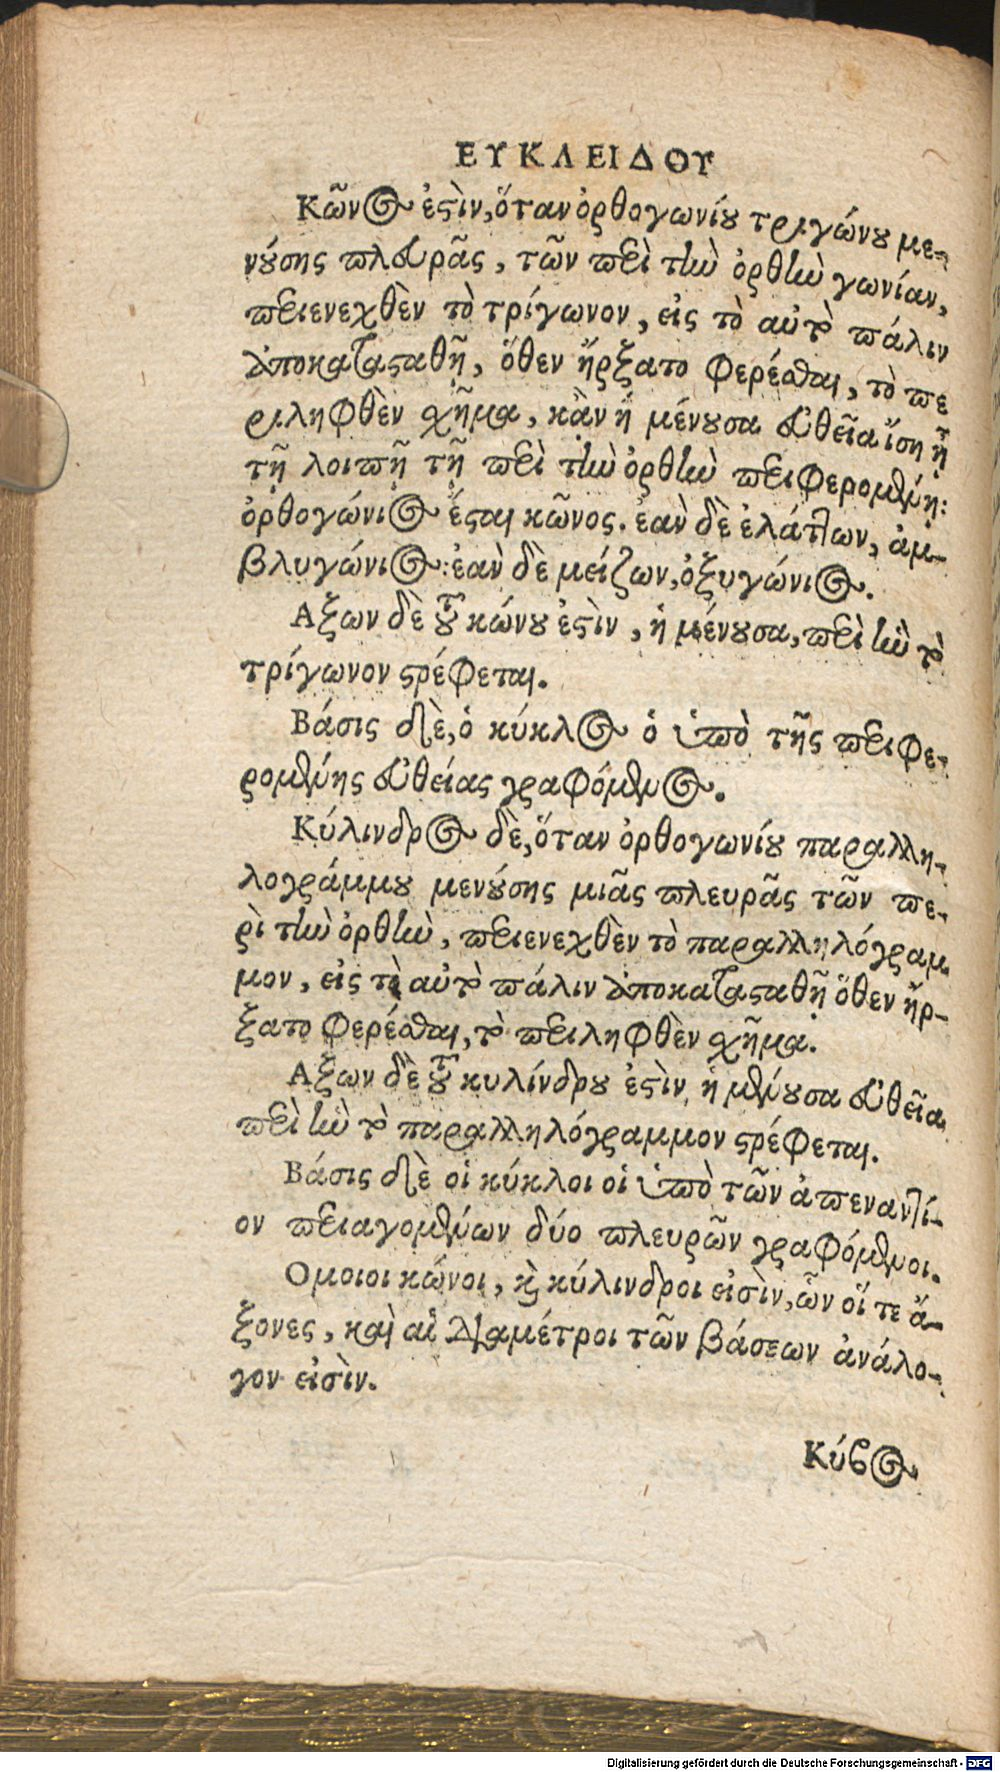 ΕΥΚΛΕΙΔΟΥ
Κῶνος ἐστὶν, ὅταν ὀρθογωνίου τριγώνου με-
νούσης πλευρᾶς, τῶν περὶ τὴν ὀρθὴν γωνίαν,
περιενεχθὲν τὸ τρίγωνον, εἰς τὸ αὐτὸ πάλιν
ἀποκατασταθῇ, ὅθεν ἤρξατο φέρεσθαι, τὸ πε
ριληφθὲν σχῆμα, κἂν ἡ μένουσα εὐθεῖα ἴση ᾖ
τῇ λοιπῇ τῇ περὶ τὴν ὀρθὴν περιφερομένῃ:
ὀρθογώνιος ἔσται κῶνος. ἐαν δὲ ἐλάττων, ἀμ-
βλυγώνιος: ἐαν δὲ μείζων, ὀξυγώνιος.
Αξων δὲ τοῦ κώνου ἐστὶν, ἡ μένουσα, περὶ ἣν τὸ
τρίγωνον στρέφεται.
Βάσις δὲ, ὁ κύκλος ὁ ὑπὸ τῆς περιφε-
ρομένης εὐθείας γραφόμενος.
Κύλινδρος δὲ, ὅταν ὀρθογωνίου παραλλη-
λογράμμου μενούσης μιᾶς πλευρᾶς τῶν πε-
ρὶ τὴν ὀρθὴν, περιενεχθὲν τὸ παραλληλόγραμ
μον, εἰς τὸ αὐτὸ πάλιν ἀποκατασταθῇ ὅθεν ἤρ-
ξατο φέρεσθαι, τὸ περιληφθὲν σχῆμα.
Αξων δὲ τοῦ κυλίνδρου ἐστὶν, ἡ μένουσα εὐθεῖα
περὶ ἣν τὸ παραλληλόγραμμον στρέφεται.
Βάσις δὲ οἱ κύκλοι οἱ ὑπὸ τῶν ἀπεναντί-
ον περιαγομένων δύο πλευρῶν γραφόμενοι.
Ομοιοι κώνοι, καὶ κύλινδροι εἰσὶν, ὧν οἵ τε ἄ-
ξονες, καὶ αἱ διαμέτροι τῶν βάσεων ἀνάλο-
γον εἰσὶν.
Κύβος
Digitalisierung gefördert durch die Deutsche Forschungsgemeinschaft - DFG